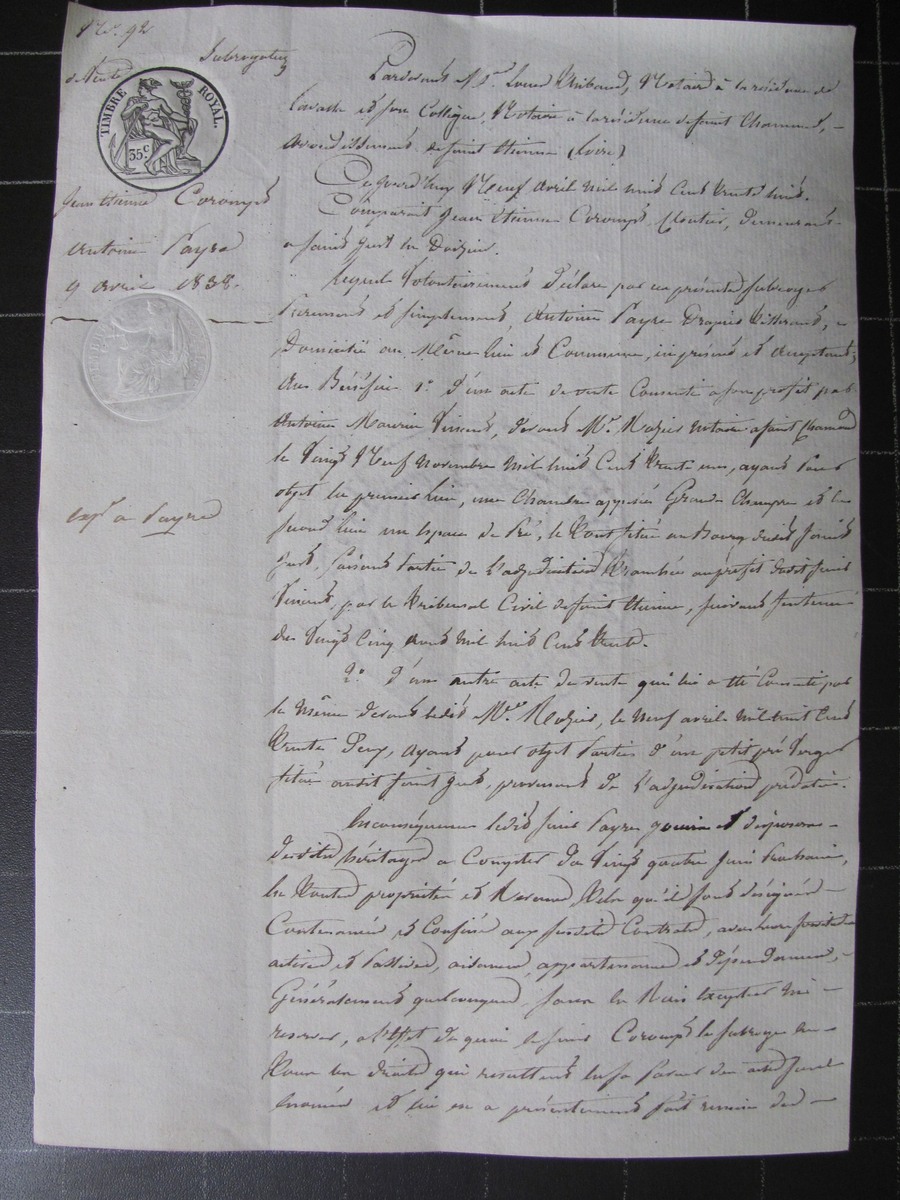 N°. 92
Subrogation
de Vente
TIMBRE ROYAL.
35 c.
Jean Etienne Coronp
Antoine Payre
9 avril 1838.
exp. a Payre
Pardevant Me. Thibaud, Notaire à la résidence de
et son Collègue, Notaire à la résidence de saint Chamond,
arrondissement de saint Etienne (Loire)
Ce jourd'huy Neuf avril mil huit Cent trente huit.
Comparait Jean Etienne Coronp, Cloutier, demeurant
a saint just en Doizieu.
Lequel Volontairement Déclare par ces présentes subroger
Purement et simplement, Antoine Payre Drapier Tisserand,
Domicilié au Même lieu et Commune, ici présent et acceptant,
Au Bénéfice 1°. D'un acte de vente Consenti a son profit par
Antoine Marie Vincent, devant Me. Rozier notaire a saint Chamond
le Vingt Neuf novembre mil huit Cent trente un, ayant pour
objet en premier lieu, une Chambre appelée Grande Chambre et en
second lieu un espace de Pré, le tout situé au Bourg dudit saint
just, faisant Partie de l'adjudication tranchée au profit dudit sieur
Vincent, par le Tribunal Civil de saint Etienne, suivant sentence
du Vingt Cinq aout mil huit Cent trente.
2°. D'un autre acte de vente qui lui a été Consenti par
le même devant ledit Me. Rozier, le neuf avril mil huit Cent
trente Deux, ayant pour objet Partie d'un petit pré Verger
situé audit saint just, provenant de l'adjudication prédatée.
En conséquence ledit sieur Payre jouira et disposera
desdits héritages a Compter du Vingt quatre juin Prochain,
en toute propriété et tels qu'ils sont désignés
Contenancés et Confinés aux susdits Contrats, avec leurs servitudes
actives et Passives, aisances, appartenances et Dépendances,
Généralement quelconques, sans en Rien excepter ni
réserver, a l'effet de quoi le sieur Coronp le subroge en
tous les droits qui résultent en sa faveur des actes
énoncés et lui en a présentement fait remise des